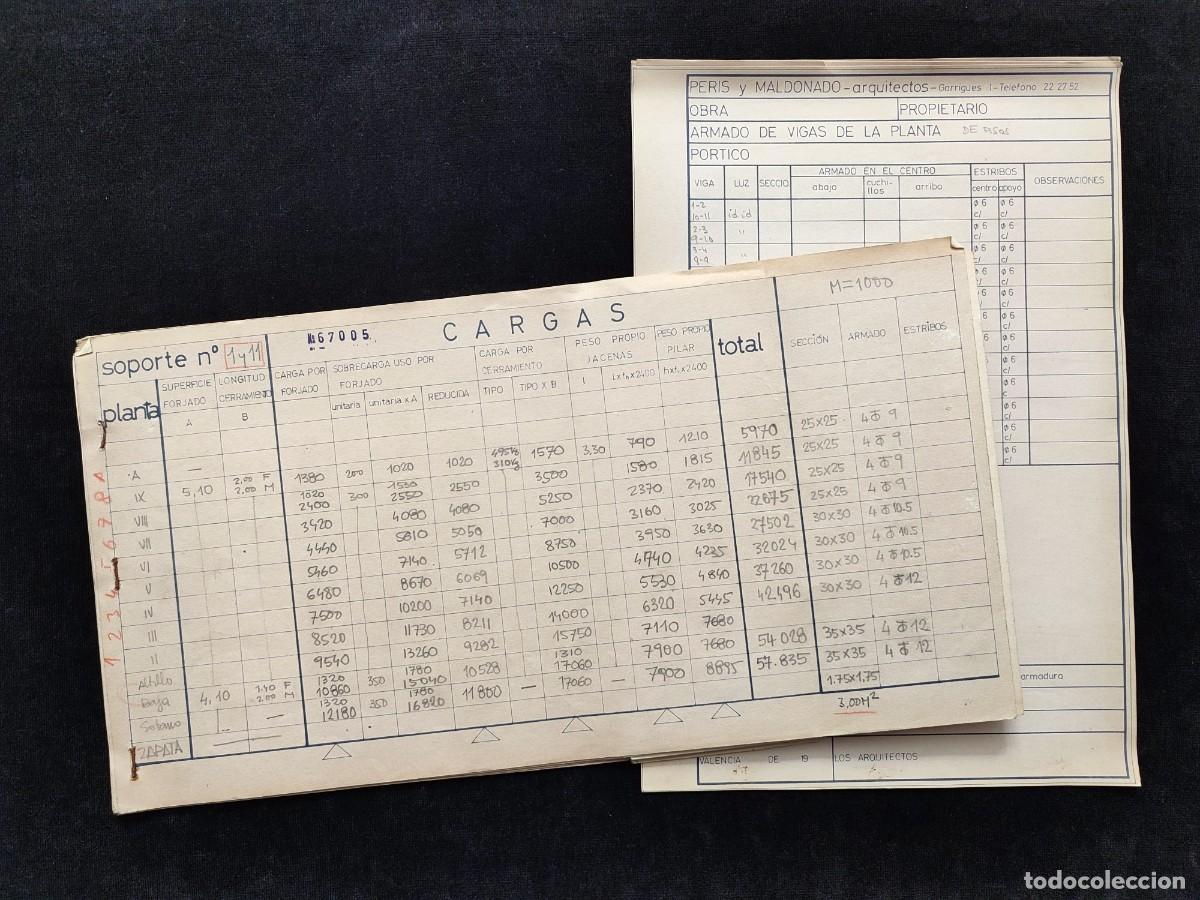 PERIS y MALDONADO - arquitectos - Garrigues 1 - Teléfono 22 27 52
OBRA PROPIETARIO
ARMADO DE VIGAS DE LA PLANTA DE PISOS
PORTICO
VIGA LUZ SECCIO ARMADO EN EL CENTRO ESTRIBOS OBSERVACIONES
abajo cuchi-llos arriba centro apoyo
1-2 ø 6 ø 6
10-11 id id c/ c/
2-3 ø 6 ø 6
9-10 " c/ c/
3-4 ø 6 ø 6
" c/ c/
ø 6
ø 6
ø 6
armadura
VALENCIA DE 19 LOS ARQUITECTOS
M=1000
Nº 67005
CARGAS
soporte nº 1 y 11
planta
SUPERFICIE FORJADO A
LONGITUD CERRAMIENTO B
CARGA POR FORJADO
SOBRECARGA USO POR FORJADO
unitaria unitaria x A REDUCIDA
CARGA POR CERRAMIENTO
TIPO TIPO X B
PESO PROPIO JACENAS
PESO PROPIO PILAR
total SECCIÓN ARMADO ESTRIBOS
A 1380 200 1020 1020 1570 3,30 790 1210 5970 25x25 4 ø 9
IX 5,10 2,00 F 2,00 M 1020 2400 300 1530 2550 2550 3500 1580 1815 11845 25x25 4 ø 9
VIII 3420 4080 4080 5250 2370 2420 17540 25x25 4 ø 9
VII 4440 5610 5050 7000 3160 3025 22675 25x25 4 ø 9
VI 5460 7140 5712 8750 3950 3630 27502 30x30 4 ø 10.5
V 6480 8670 6069 10500 4740 4235 32024 30x30 4 ø 10.5
IV 7500 10200 7140 12250 5530 4840 37260 30x30 4 ø 10.5
III 8520 11730 8211 14000 6320 5445 42496 30x30 4 ø 12
II 9540 13260 9282 15750 7110 7680
Altillo 1320 10860 350 1780 15040 10528 1310 17060 7900 7680 54028 35x35 4 ø 12
Baja 4,10 1.40 F 2.00 M 1320 12180 350 1780 16820 11800 — 17060 — 7900 8895 57.835 35x35 4 ø 12
Sotano
ZAPATA 1.75x1.75
3,00 M²
1 2 3 4 5 6 7 8 A
todocoleccion